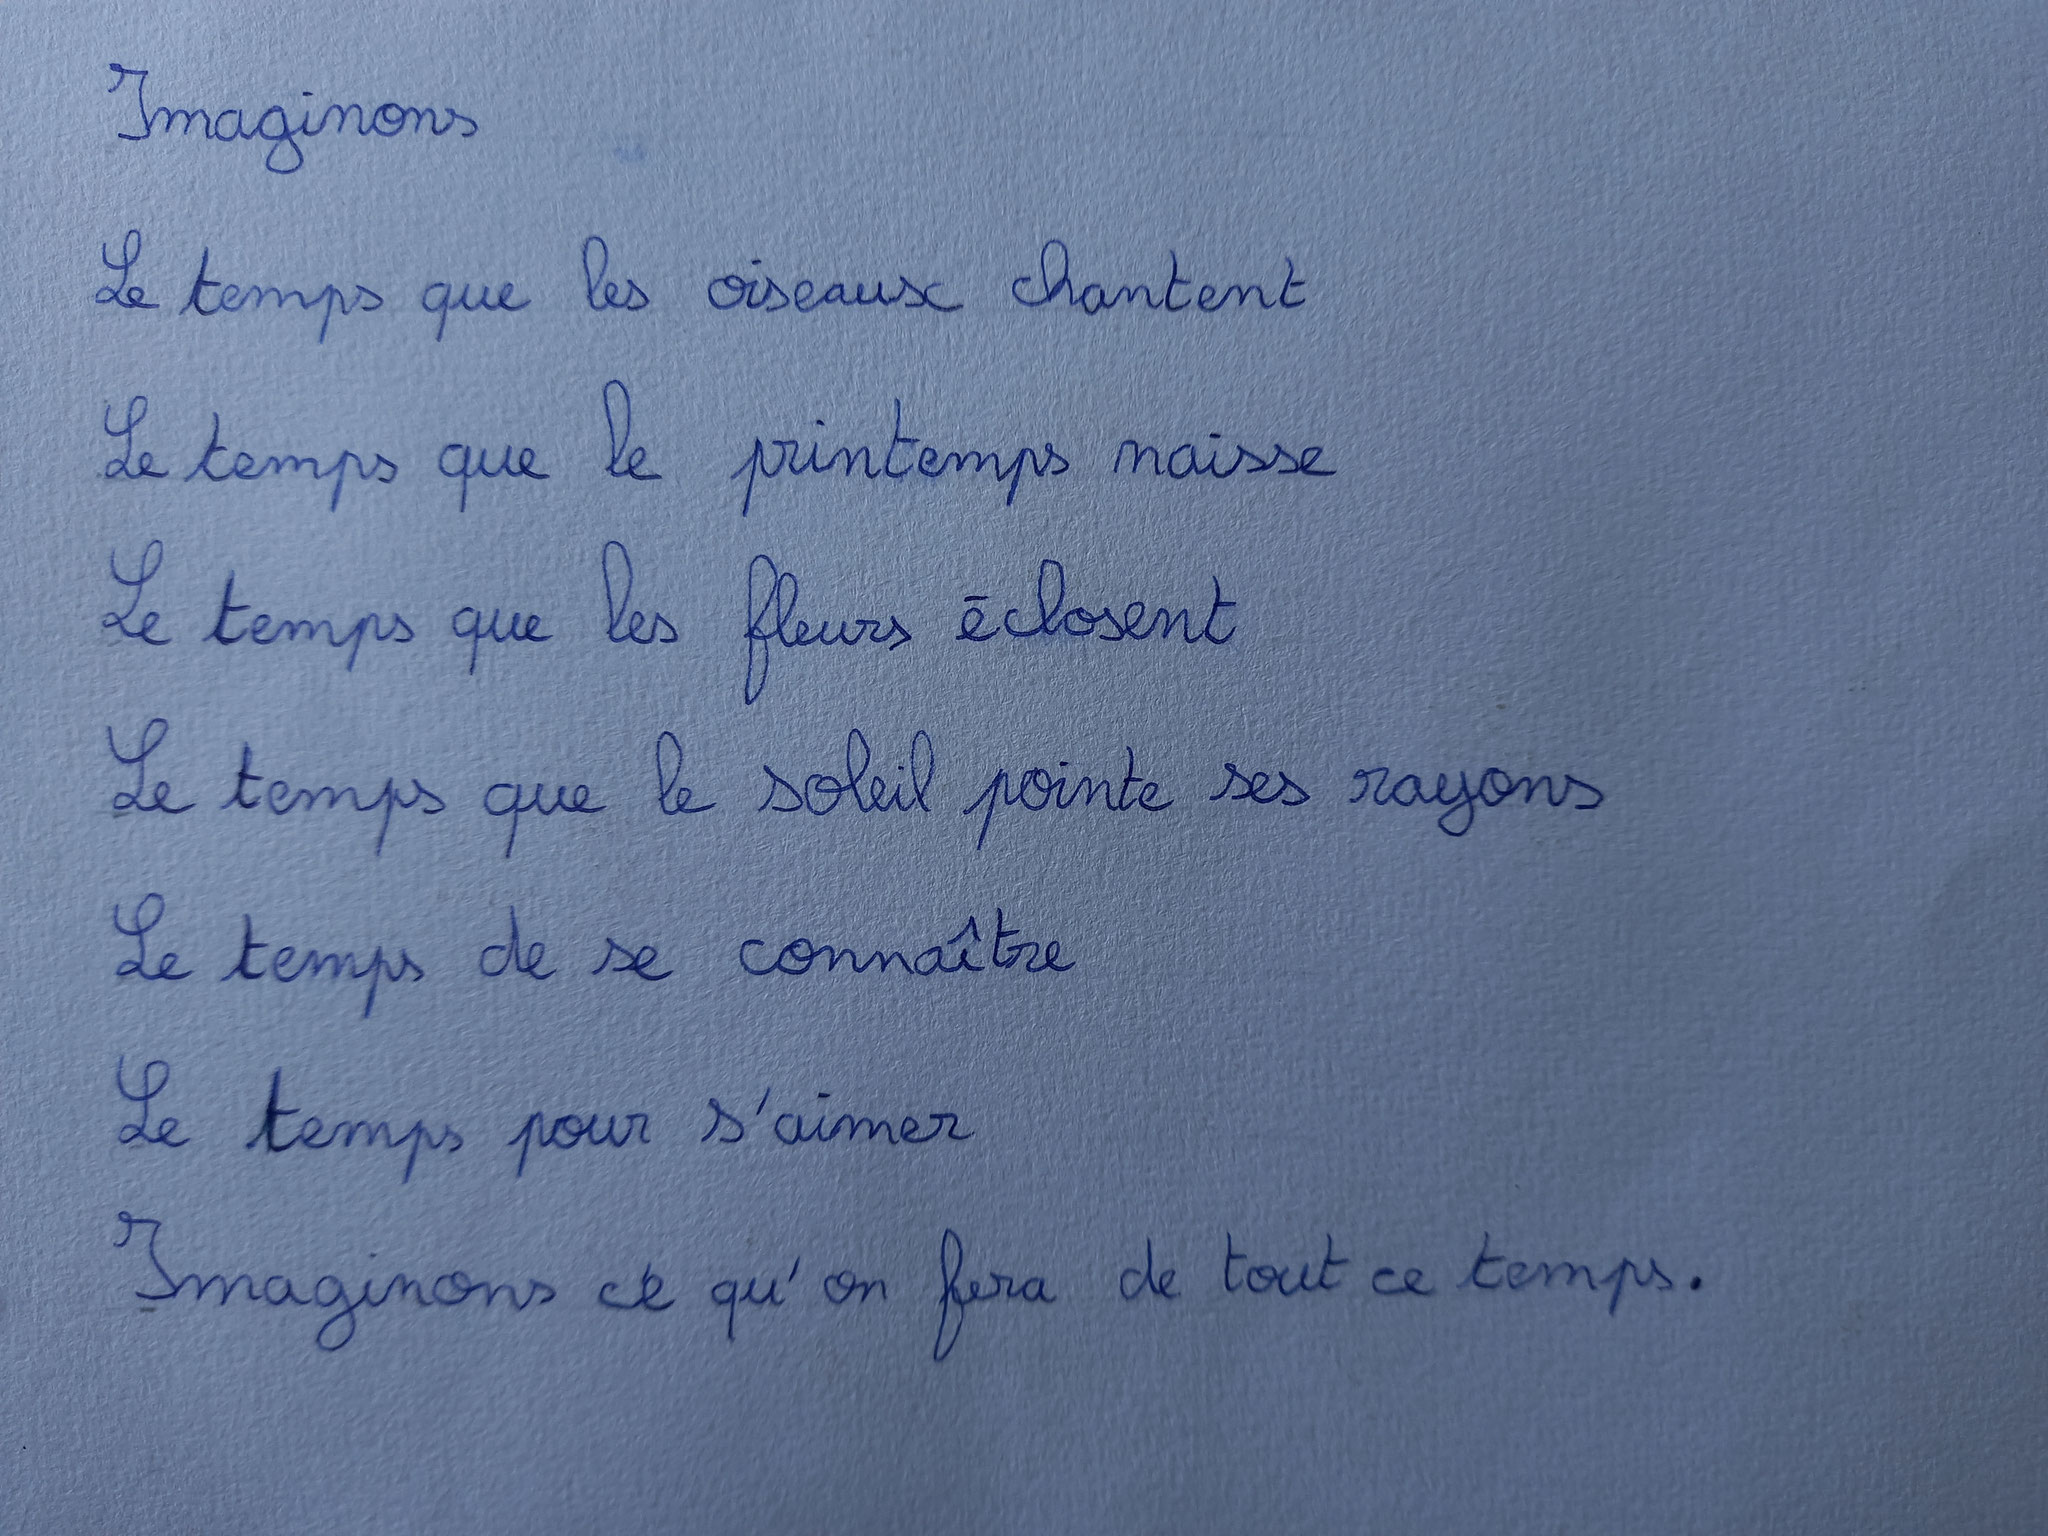 Imaginons
Le temps que les oiseaux chantent
Le temps que le printemps naisse
Le temps que les fleurs éclosent
Le temps que le soleil pointe ses rayons
Le temps de se connaître
Le temps pour s'aimer
Imaginons ce qu'on fera de tout ce temps.